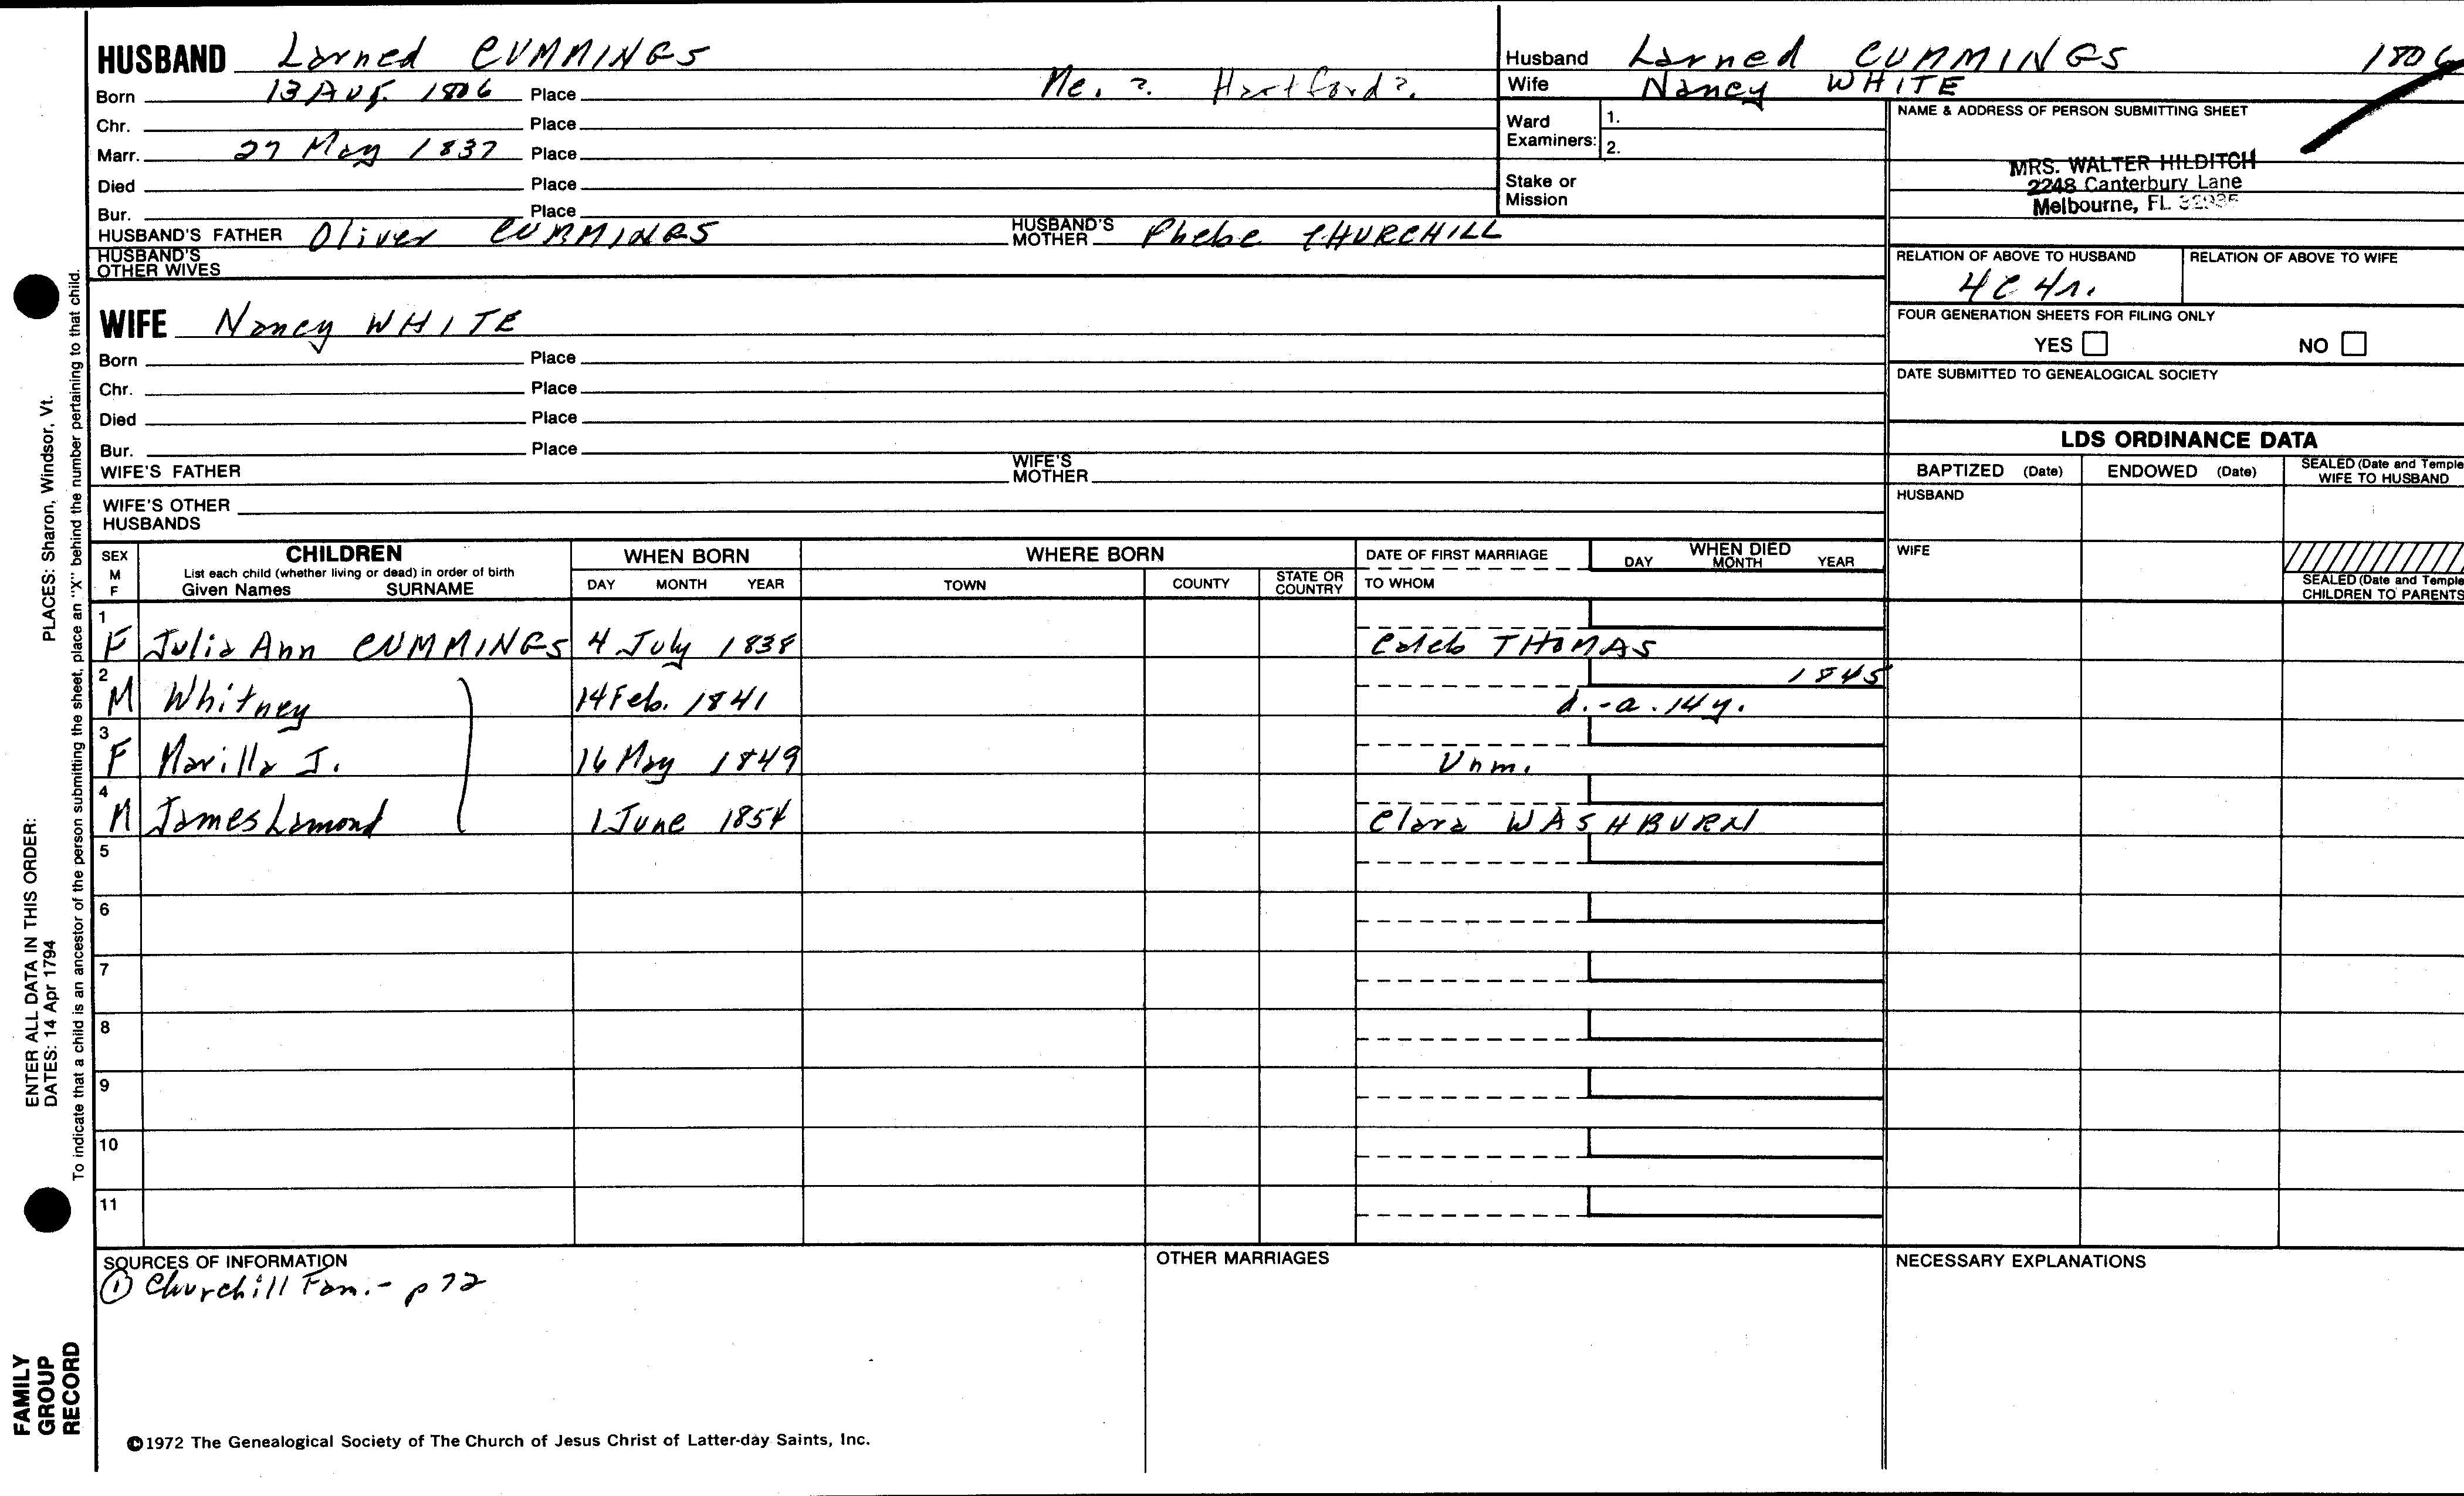 HUSBAND Larned CUMMINGS
Born 13 Aug. 1806 Place Me. ? Hartford?.
Chr. Place
Marr. 27 May 1837 Place
Died Place
Bur. Place
HUSBAND'S FATHER Oliver CUMMINGS HUSBAND'S MOTHER Phebe CHURCHILL
HUSBAND'S OTHER WIVES
WIFE Nancy WHITE
Born Place
Chr. Place
Died Place
Bur. Place
WIFE'S FATHER WIFE'S MOTHER
WIFE'S OTHER HUSBANDS
Husband Larned CUMMINGS 1806
Wife Nancy WHITE
Ward Examiners: 1.
2.
Stake or Mission
NAME & ADDRESS OF PERSON SUBMITTING SHEET
MRS. WALTER HILDITCH
2248 Canterbury Lane
Melbourne, FL 32935
RELATION OF ABOVE TO HUSBAND RELATION OF ABOVE TO WIFE
4C 4r.
FOUR GENERATION SHEETS FOR FILING ONLY
YES NO
DATE SUBMITTED TO GENEALOGICAL SOCIETY
LDS ORDINANCE DATA
BAPTIZED (Date) ENDOWED (Date) SEALED (Date and Temple) WIFE TO HUSBAND
HUSBAND
WIFE
SEALED (Date and Temple) CHILDREN TO PARENTS
SEX M F CHILDREN WHEN BORN WHERE BORN DATE OF FIRST MARRIAGE WHEN DIED
List each child (whether living or dead) in order of birth
Given Names SURNAME DAY MONTH YEAR TOWN COUNTY STATE OR COUNTRY TO WHOM DAY MONTH YEAR
1 F Julia Ann CUMMINGS 4 July 1838 Caleb THOMAS
2 M Whitney 14 Feb. 1841 d.-a. 14 y. 1845
3 F Marilla J. 16 May 1849 Unm.
4 M James Lamond 1 June 1854 Clara WASHBURN
5
6
7
8
9
10
11
SOURCES OF INFORMATION
① Churchill Fam. - p 72
OTHER MARRIAGES
NECESSARY EXPLANATIONS
©1972 The Genealogical Society of The Church of Jesus Christ of Latter-day Saints, Inc.
FAMILY GROUP RECORD
ENTER ALL DATA IN THIS ORDER:
DATES: 14 Apr 1794 PLACES: Sharon, Windsor, Vt.
To indicate that a child is an ancestor of the person submitting the sheet, place an "X" behind the number pertaining to that child.